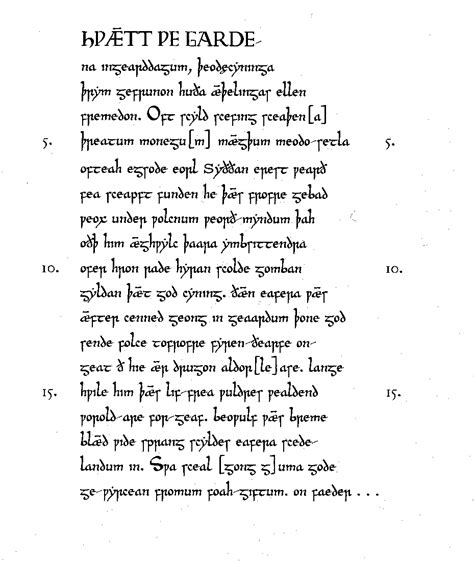 HǷÆTT ǷE GARDE-
na ingearddagum, þeodęcyninga
þrym gefrunon huða æþelingas ellen
fremedon. Oft scyld scefing sceaþen[a]
5. þreatum monegu[m] mægþum meodo-setla 5.
ofteah egsode eorl Syððan erest ƿearð
fea sceaƿft funden he þæs frofre gebad
ƿeox under ƿolcnum ƿeorð-myndum þah
oðþ him æghƿylc þaara ymbsittendra
10. ofer hron rade hyran scolde gomban 10.
gyldan þæt god cyning. ðæn eafera ƿæs
æfter cenned geong in geaardum þone god
sende folce tofrofre fyren-ðearfe on-
geat ð hie ær drugon aldor[le]ase. lange
15. hƿile him þæs lif-frea ƿuldres ƿealdend 15.
ƿorold-are for-geaf. beoƿulf ƿæs breme
blæd ƿide sprang scyldes eafera scede-
landum in. Sƿa sceal [gong g]uma gode
ge-ƿyrcean fromum foah-giftum. on faeder . . .